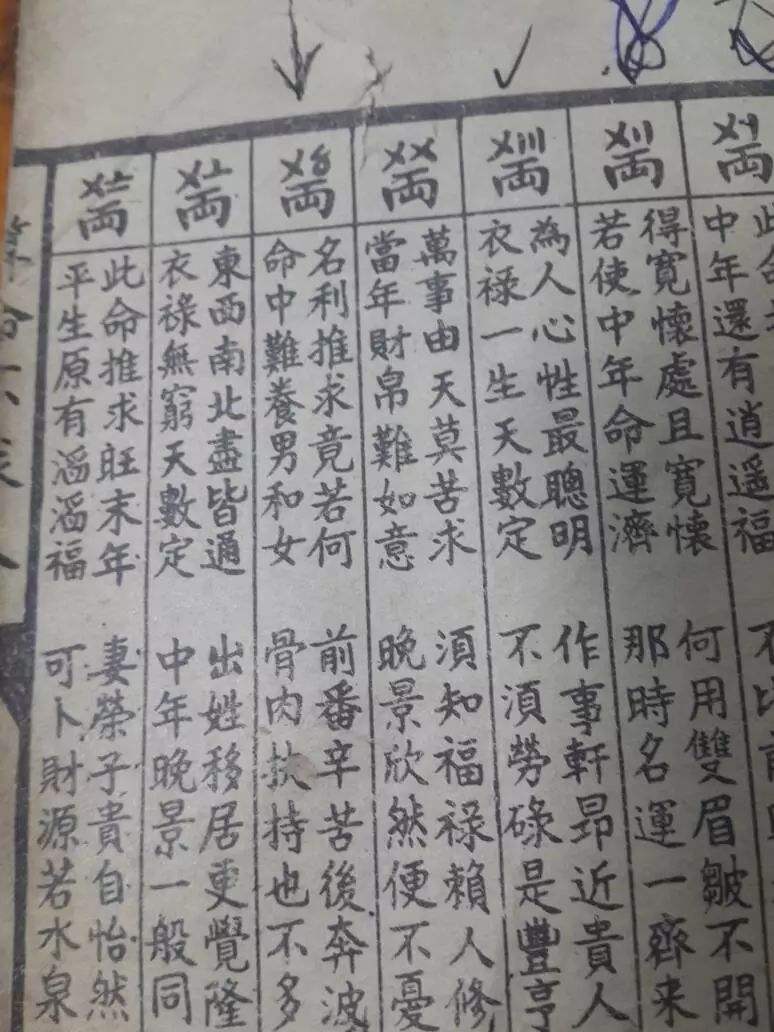 〤〡両
中年還有逍遙福
不比前
〤〢両
得寬懷處且寬懷
何用雙眉皺不開
若使中年命運濟
那時名運一齊來
〤〣両
為人心性最聰明
作事軒昻近貴人
衣祿一生天數定
不須勞碌是豐亨
〤〤両
萬事由天莫苦求
須知福祿賴人修
當年財帛難如意
晚景欣然便不憂
〤〥両
名利推求竟若何
前番辛苦後奔波
命中難養男和女
骨肉扶持也不多
〤〦両
東西南北盡皆通
出姓移居更覺隆
衣祿無窮天數定
中年晚景一般同
〤〧両
此命推求旺末年
妻榮子貴自怡然
平生原有滔滔福
可卜財源若水泉